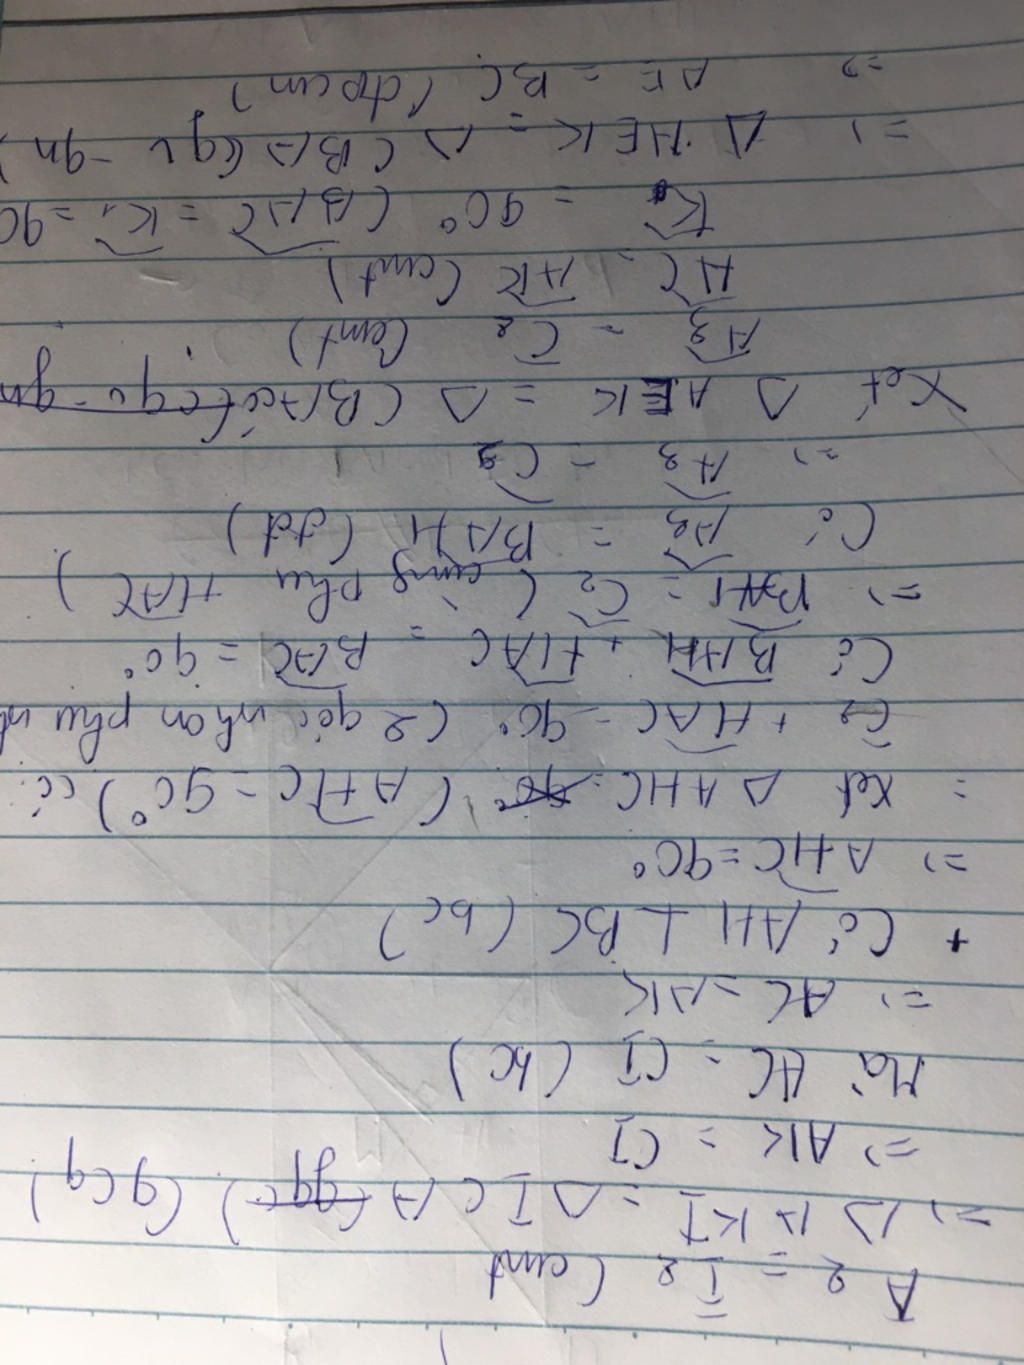 A2 = I2 (cmt
=> Δ AKI = Δ ICA (ggc) (gcg)
=> AK = CI
Mà AC = CI (bc)
=> AC = AK
+ Có AH ⊥ BC (bc)
=> AHC = 90°
= Xét Δ AHC = 90° (AHC = 90°) có:
C2 + HAC = 90° (2 góc nhọn phụ nh
Có BAH + HAC = BAC = 90°
=> BAH = C2 (cùng phụ HAC)
Có A3 = BAH (đđ)
=> A3 = C2
Xét Δ AEK = Δ CBA có (gc - gn
A3 = C2 (cmt)
AC = AK (cmt)
K1 = 90° (BAC = K1 = 90
=> Δ AEK = Δ CBA (gc - gn)
=> AE = BC (đpcm)